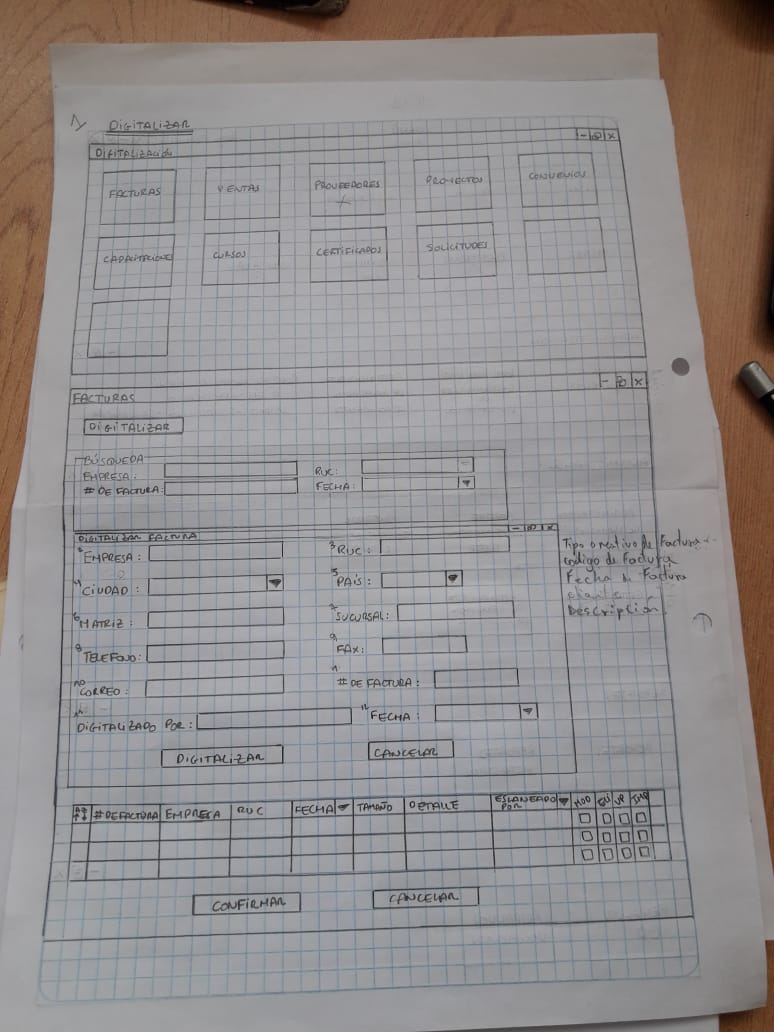 1
DIGITALIZAR
DIGITALIZACIÓN - x
FACTURAS VENTAS PROVEEDORES PROYECTOS CONVENIOS
CAPACITACIONES CURSOS CERTIFICADOS SOLICITUDES
FACTURAS - x
DIGITALIZAR
BÚSQUEDA
EMPRESA: RUC:
# DE FACTURA: FECHA:
DIGITALIZAR FACTURA - x
EMPRESA: 3 RUC:
4 CIUDAD: 5 PAÍS:
6 MATRIZ: 7 SUCURSAL:
8 TELEFONO: 9 FAX:
10 CORREO: 11 # DE FACTURA:
DIGITALIZADO POR: 12 FECHA:
DIGITALIZAR CANCELAR
Tipo de Factura
código de Factura
Fecha de Factura
cliente
Descripcion
# DE FACTURA EMPRESA RUC FECHA TAMAÑO DETALLE ESCANEADO POR MOD ELI VP IMP
CONFIRMAR CANCELAR